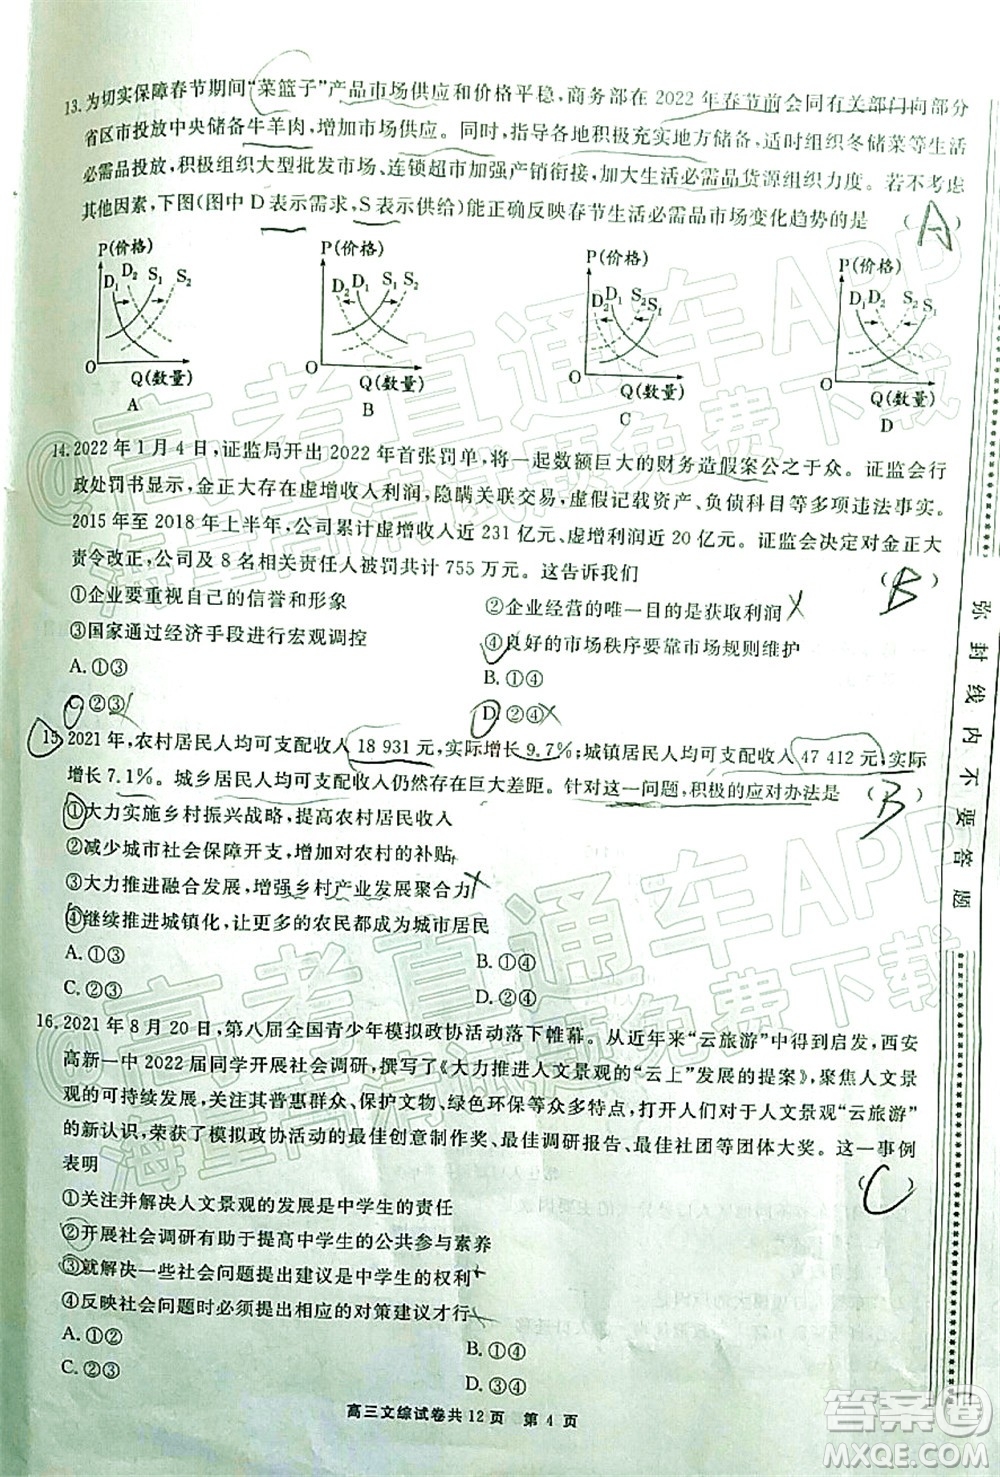 13.为切实保障春节期间“菜篮子”产品市场供应和价格平稳,商务部在2022年春节前会同有关部门向部分
省区市投放中央储备牛羊肉,增加市场供应。同时,指导各地积极充实地方储备,适时组织冬储菜等生活
必需品投放,积极组织大型批发市场、连锁超市加强产销衔接,加大生活必需品货源组织力度。若不考虑
其他因素,下图(图中D表示需求,S表示供给)能正确反映春节生活必需品市场变化趋势的是 (A)
P(价格) P(价格) P(价格) P(价格)
D₁ D₂ S₁ S₂ D₂ D₁ S₁ S₂ D₂ D₁ S₂ S₁ D₁ D₂ S₂ S₁
O O O O
Q(数量) Q(数量) Q(数量) Q(数量)
A B C D
14.2022年1月4日,证监局开出2022年首张罚单,将一起数额巨大的财务造假案公之于众。证监会行
政处罚书显示,金正大存在虚增收入利润,隐瞒关联交易,虚假记载资产、负债科目等多项违法事实。
2015年至2018年上半年,公司累计虚增收入近231亿元、虚增利润近20亿元。证监会决定对金正大
责令改正,公司及8名相关责任人被罚共计755万元。这告诉我们 (B)
①企业要重视自己的信誉和形象 ②企业经营的唯一目的是获取利润
③国家通过经济手段进行宏观调控 ④良好的市场秩序要靠市场规则维护
A.①③ B.①④
C.②③ D.②④
15.2021年,农村居民人均可支配收入18 931元,实际增长9.7%;城镇居民人均可支配收入47 412元,实际
增长7.1%。城乡居民人均可支配收入仍然存在巨大差距。针对这一问题,积极的应对办法是 (B)
①大力实施乡村振兴战略,提高农村居民收入
②减少城市社会保障开支,增加对农村的补贴
③大力推进融合发展,增强乡村产业发展聚合力
④继续推进城镇化,让更多的农民都成为城市居民
A.①③ B.①④
C.②③ D.②④
16.2021年8月20日,第八届全国青少年模拟政协活动落下帷幕。从近年来“云旅游”中得到启发,西安
高新一中2022届同学开展社会调研,撰写了《大力推进人文景观的“云上”发展的提案》,聚焦人文景
观的可持续发展,关注其普惠群众、保护文物、绿色环保等众多特点,打开人们对于人文景观“云旅游”
的新认识,荣获了模拟政协活动的最佳创意制作奖、最佳调研报告、最佳社团等团体大奖。这一事例
表明 (C)
①关注并解决人文景观的发展是中学生的责任
②开展社会调研有助于提高中学生的公共参与素养
③就解决一些社会问题提出建议是中学生的权利
④反映社会问题时必须提出相应的对策建议才行
A.①② B.①④
C.②③ D.③④
高三文综试卷共12页 第4页
弥封线内不要答题
@高考直通车APP
海量高清试题免费下载
@高考直通车APP
海量高清试题免费下载
答案圈
MXQE.COM